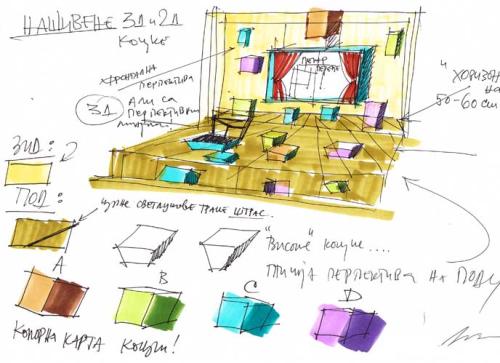 НАШИВЕНЕ 3Д и 2Д
КОЦКЕ
ФРОНТАЛНА
ПЕРПЕКТИВА
3Д
АЛИ СА
ПЕРПЕКТИВОМ
ПЕТАР
"ХОРИЗОН
НА
50-60 cm
ЗИД:
ПОД:
ЦРНЕ СВЕТЛУЦАВЕ ТРАКЕ ШТРАС.
"Високе" коцке....
ПТИЧЈА ПЕРПЕКТИВА НА ПОДУ
A
B
C
D
КОЛОРНА КАРТА КОЦКИ!